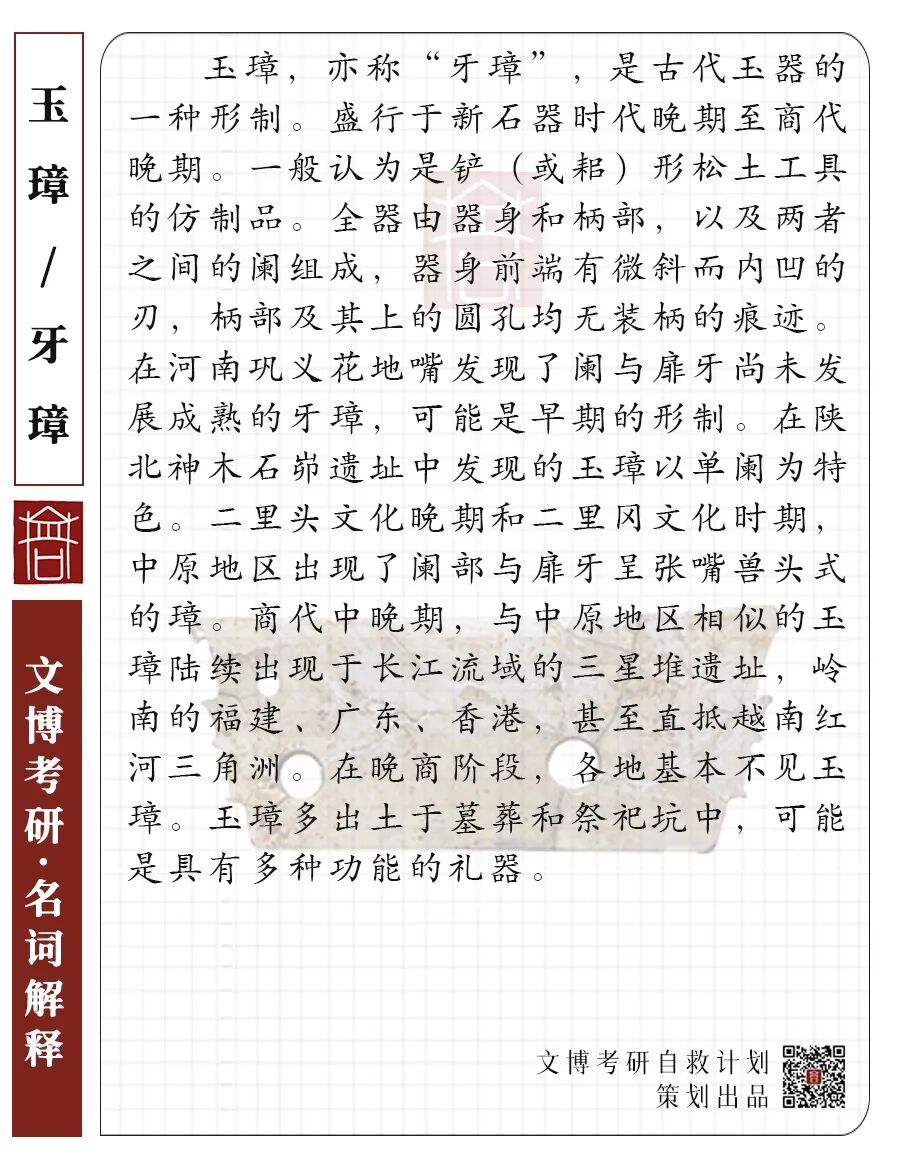 玉璋/牙璋
文博考研·名词解释
玉璋，亦称“牙璋”，是古代玉器的
一种形制。盛行于新石器时代晚期至商代
晚期。一般认为是铲（或耜）形松土工具
的仿制品。全器由器身和柄部，以及两者
之间的阑组成，器身前端有微斜而内凹的
刃，柄部及其上的圆孔均无装柄的痕迹。
在河南巩义花地嘴发现了阑与扉牙尚未发
展成熟的牙璋，可能是早期的形制。在陕
北神木石峁遗址中发现的玉璋以单阑为特
色。二里头文化晚期和二里冈文化时期，
中原地区出现了阑部与扉牙呈张嘴兽头式
的璋。商代中晚期，与中原地区相似的玉
璋陆续出现于长江流域的三星堆遗址，岭
南的福建、广东、香港，甚至直抵越南红
河三角洲。在晚商阶段，各地基本不见玉
璋。玉璋多出土于墓葬和祭祀坑中，可能
是具有多种功能的礼器。
文博考研自救计划
策划出品